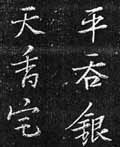 平吞銀
天香宅